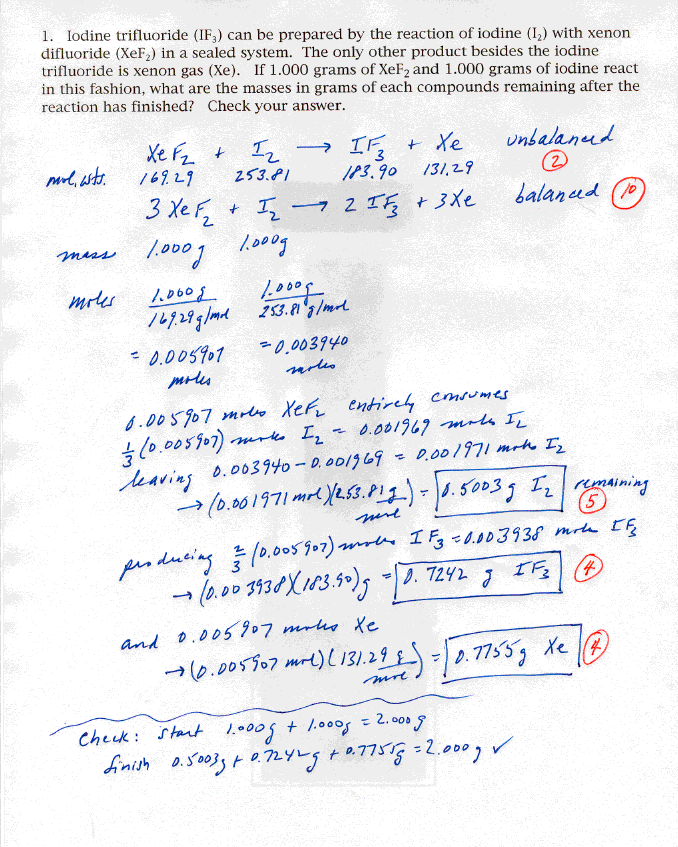 1. Iodine trifluoride (IF₃) can be prepared by the reaction of iodine (I₂) with xenon
difluoride (XeF₂) in a sealed system. The only other product besides the iodine
trifluoride is xenon gas (Xe). If 1.000 grams of XeF₂ and 1.000 grams of iodine react
in this fashion, what are the masses in grams of each compounds remaining after the
reaction has finished? Check your answer.
XeF₂ + I₂ → IF₃ + Xe unbalanced
②
mol. wts. 169.29 253.81 183.90 131.29
3 XeF₂ + I₂ → 2 IF₃ + 3Xe balanced ⑩
mass 1.000g 1.000g
moles 1.000g/169.29g/mol 1.000g/253.81 g/mol
= 0.005907 moles = 0.003940 moles
0.005907 moles XeF₂ entirely consumes
1/3 (0.005907) moles I₂ = 0.001969 moles I₂
leaving 0.003940 - 0.001969 = 0.001971 moles I₂
→ (0.001971 mol)(253.81 g/mol) = 0.5003 g I₂ remaining
⑤
producing 2/3 (0.005907) moles IF₃ = 0.003938 moles IF₃
→ (0.003938)(183.90)g = 0.7242 g IF₃ ④
and 0.005907 moles Xe
→ (0.005907 mol)(131.29 g/mol) = 0.7755g Xe ④
Check: start 1.000g + 1.000g = 2.000g
finish 0.5003g + 0.7242g + 0.7755g = 2.000g ✓